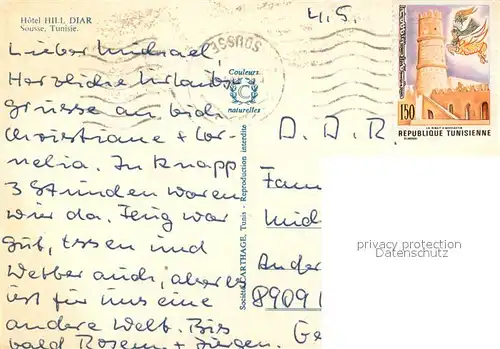 Hôtel HILL DIAR
Sousse, Tunisie.
4.5.
Lieber Michael,
Herzliche Urlaubs-
grüsse an dich
Christiane + Cor-
nelia. In knapp
3 Stunden waren
wir da. Zeug war
gut, Essen und
Wetter auch, aber es
ist für uns eine
andere Welt. Bis
bald Rosem + Jürgen.
SOUSSE
Couleurs
C
naturelles
Société CARTHAGE, Tunis - Reproduction interdite
150
REPUBLIQUE TUNISIENNE
D. D. R.
Fam
Mich
Ander
8909
Ge
privacy protection
Datenschutz